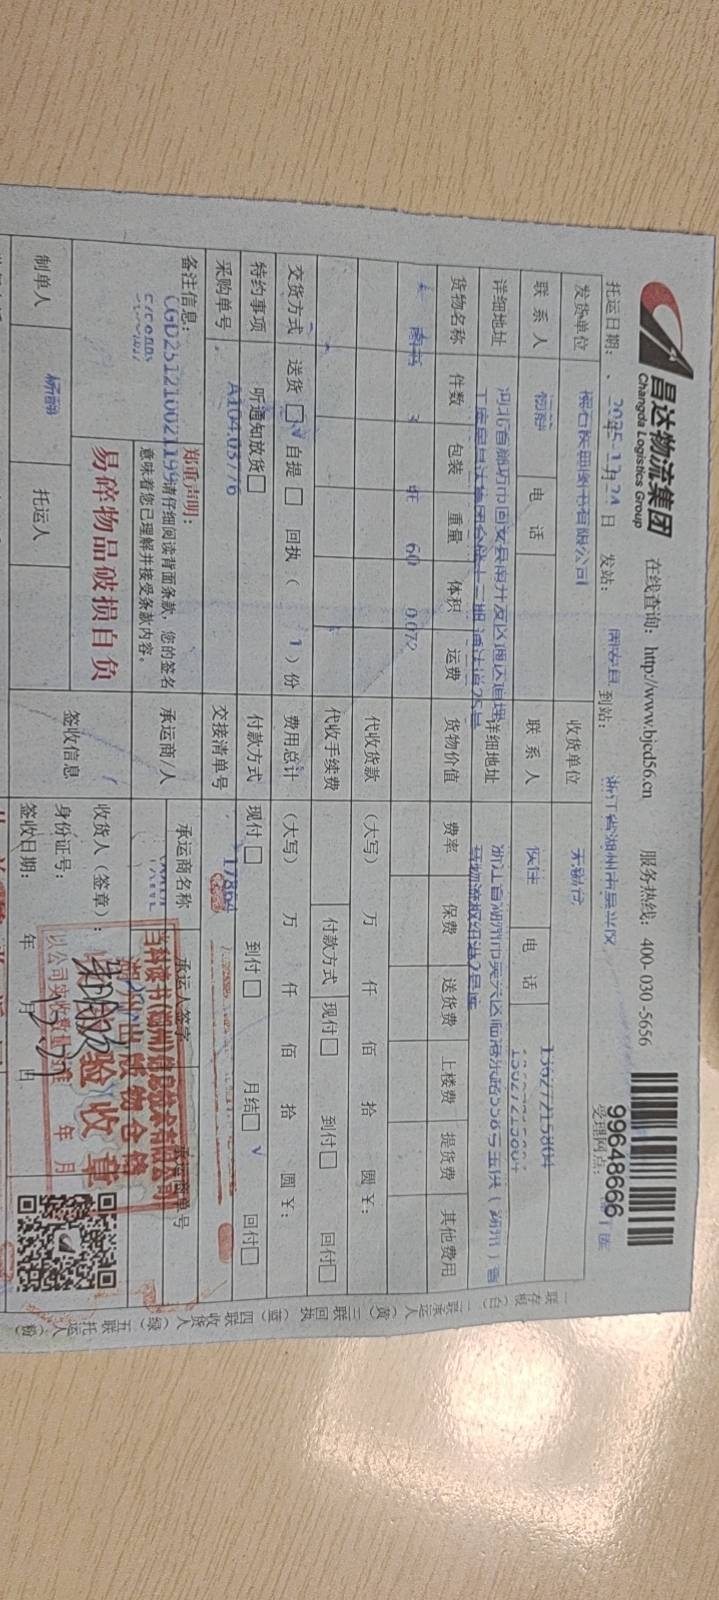 昌达物流集团
Changda Logistics Group
在线查询：http://www.bjcd56.cn
服务热线：400-030-5656
99648666
托运日期：2025年12月24日
发站：固安县
到站：浙江省湖州市吴兴区
受理网点：
发货单位
收货单位
联系人
电话
联系人
电话 13627215804
13627215804
详细地址
河北省廊坊市固安县南开发区通达道
详细地址
浙江省湖州市吴兴区临港东路558号玉供（湖州）
货物名称 件数 包装 重量 体积 运费 货物价值 费率 保费 送货费 上楼费 提货费 其他费用
图书 3 60 0.072
代收货款 （大写） 万 仟 佰 拾 圆￥：
代收手续费 付款方式 现付□ 到付□ 回付□
交货方式 送货□√ 自提□ 回执（ 1 ）份
费用总计 （大写） 万 仟 佰 拾 圆￥：
特约事项 听通知放货□
付款方式 现付□ 到付□ 月结□√ 回付□
采购单号 A104.03776
交接清单号 17864
备注信息：
CGD25121002119
郑重声明：
请仔细阅读背面条款，您的签名
意味着您已理解并接受条款内容。
易碎物品破损自负
承运商/人
承运商名称
承运人签字
承运商单号
制单人
托运人
签收信息
收货人（签章）：
身份证号：
签收日期： 年 月 日
湖州出版物仓储
验收章
以公司实收数量为准
年 月
一联存根（白）二联承运人（黄）三联回执（蓝）四联收货人（绿）五联托运人（粉）